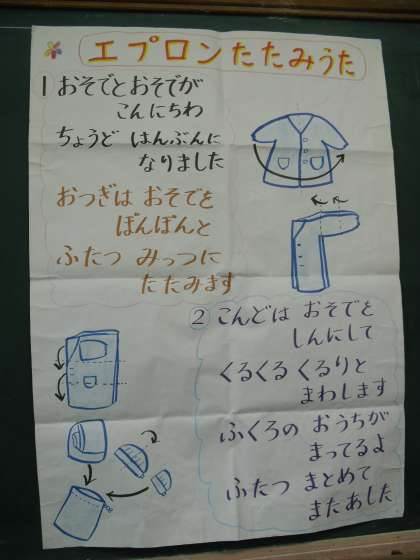 エプロンたたみうた
1 おそでとおそでが
こんにちわ
ちょうど はんぶんに
なりました
おつぎは おそでを
ぽんぽんと
ふたつ みっつに
たたみます
② こんどは おそでを
しんにして
くるくる くるりと
まわします
ふくろの おうちが
まってるよ
ふたつ まとめて
またあした